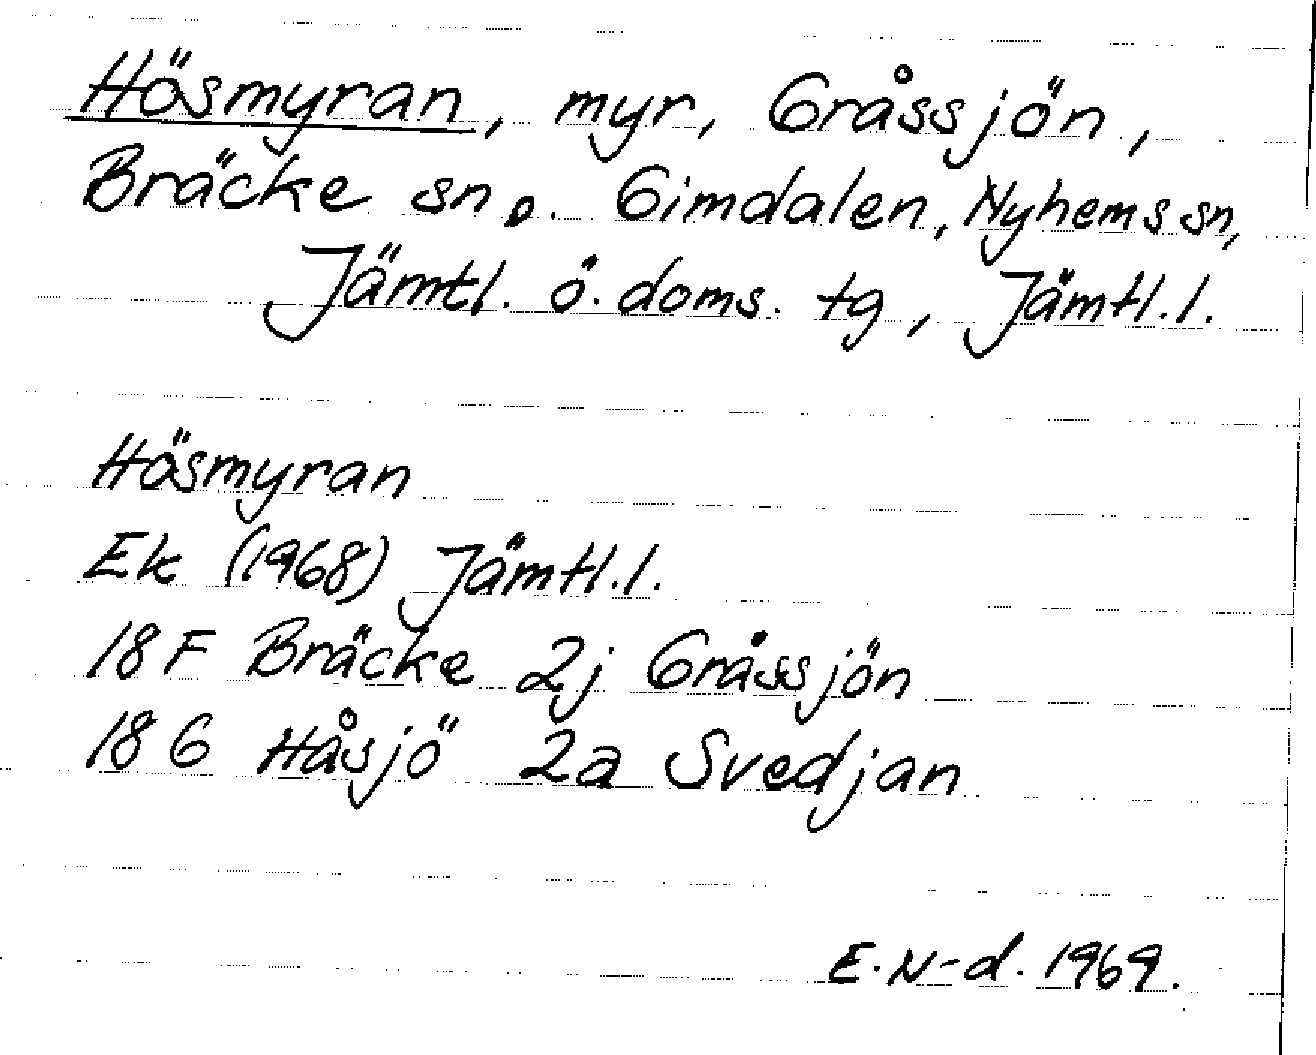 Hösmyran, myr, Gråssjön,
Bräcke sn o. Gimdalen, Nyhems sn,
Jämtl. ö. doms. tg, Jämtl. l.
Hösmyran
Ek (1968) Jämtl. l.
18 F Bräcke 2j Gråssjön
18 G Håsjö 2a Svedjan
E. N-d. 1969.